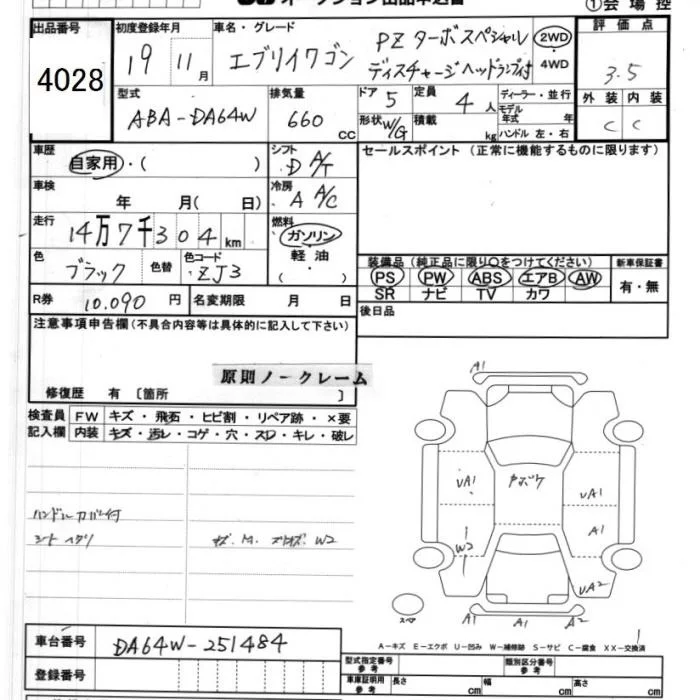 オークション出品申込書
① 会場控
出品番号 4028
初度登録年月 19 11月
車名・グレード エブリイワゴン PZ ターボスペシャル ディスチャージヘッドランプ付
2WD・4WD
評価点 3.5
外装 C 内装 C
型式 ABA-DA64W
排気量 660 cc
ドア 5 定員 4人
形状 W/G 積載 kg
ディーラー・並行
モデル年式 年
ハンドル 左・右
車歴 自家用・( )
シフト D A/T
車検 年 月( 日)
冷房 A A/C
走行 14万7千304km
燃料 ガソリン 軽油 ( ・ )
色 ブラック 色替 色コード ZJ3
R券 10,090円 名変期限 月 日
セールスポイント(正常に機能するものに限ります)
装備品(純正品に限り○をつけてください)
PS PW ABS エアB AW
SR ナビ TV カワ
新車保証書 有・無
後日品
注意事項申告欄(不具合内容等は具体的に記入して下さい)
原則ノークレーム
修復歴 有〔箇所 〕
検査員記入欄
FW キズ・飛石・ヒビ割・リペア跡・×要
内装 キズ・汚レ・コゲ・穴・スレ・キレ・破レ
ハンドルカバー付
シートヘタリ
キズ. M. スリキズ. W2
A1
UA1 UA1
A1
W2
UA2
A1 A1 A2
スペア
A-キズ E-エクボ U-凹み W-補修跡 S-サビ C-腐食 XX-交換済
車台番号 DA64W-251484
登録番号
型式指定番号 参考
類別区分番号 参考
車庫証明用 参考 長さ cm 幅 cm 高さ cm